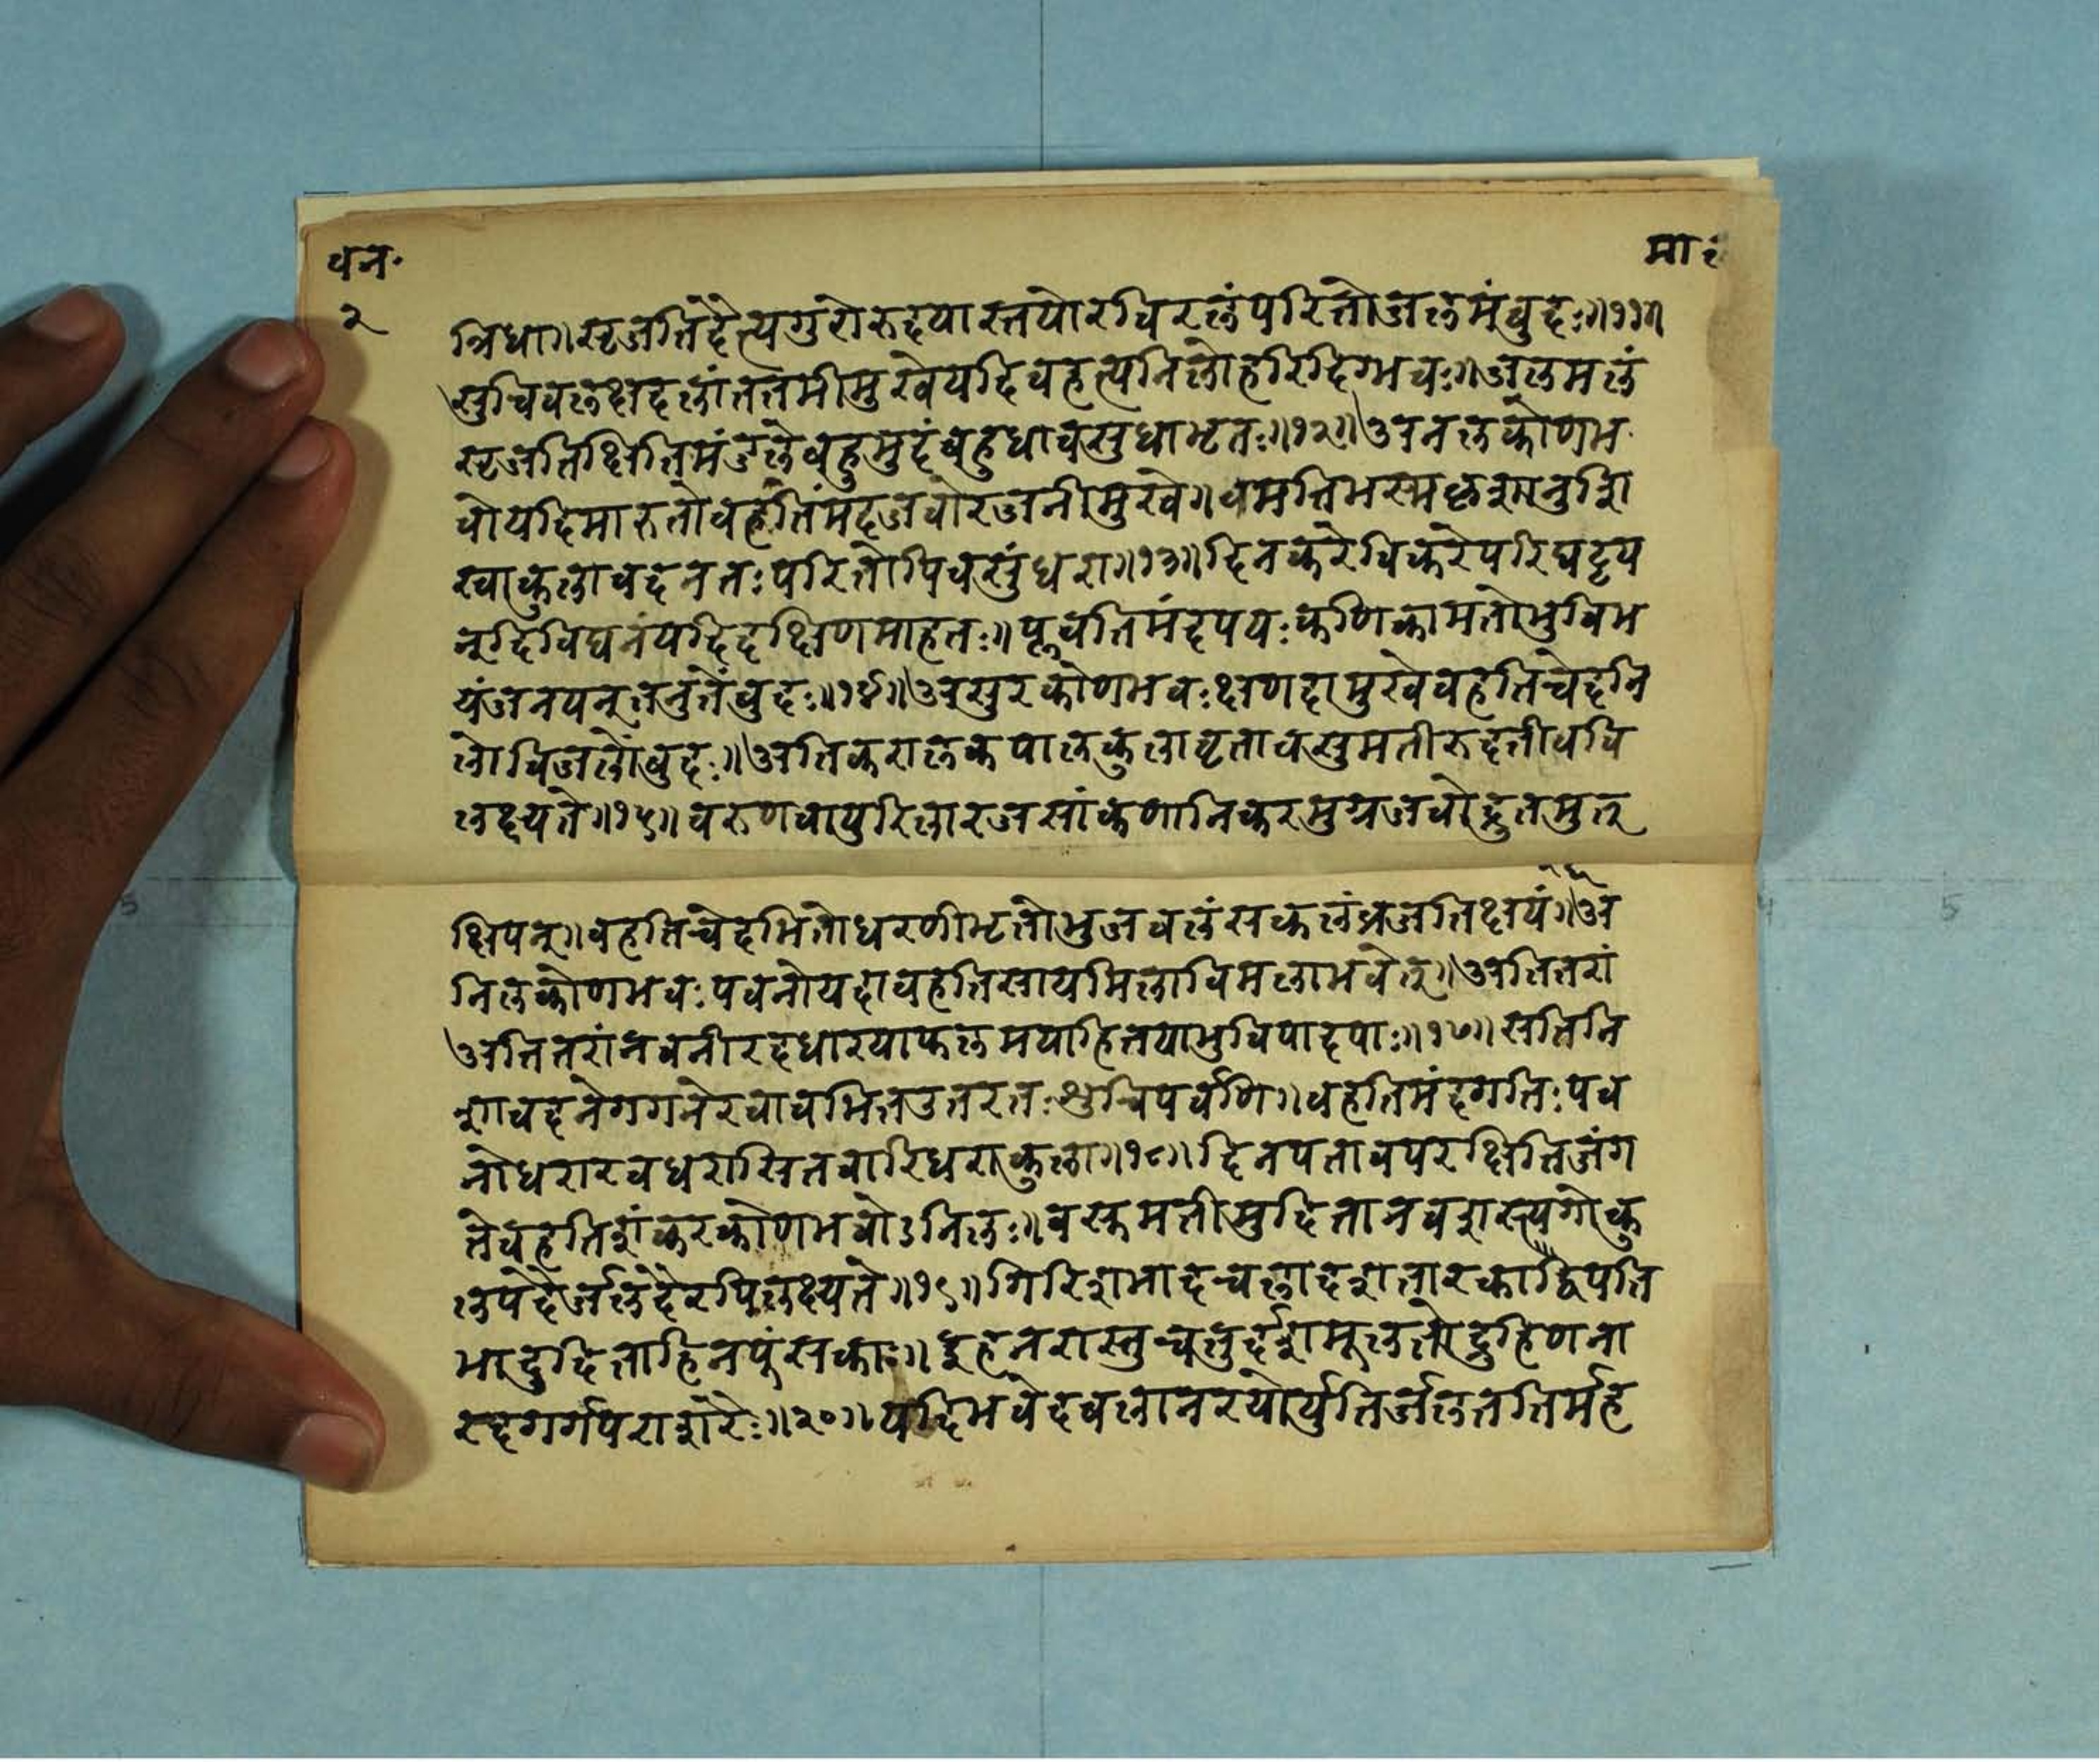 वन॰
मा २
२
त्रिधा॥सृजतिदैत्यगुरोरुदयास्तयोरविरलंपरितोजलमंबुदः॥११॥
सुचिवलक्षदलांततमीमुखेयदिवहत्यनिलोहरिदिग्भवः॥जलमलं
सृजतिक्षितिमंडलेबहुमुदंबहुधावसुधाभृतः॥१२॥अनलकोणभ
वोयदिमारुतोवहतिमंदजवोरजनीमुखे॥वमतिभस्मकृशानुशि
खाकुलावदनतःपरितोपिवसुंधरा॥१३॥दिनकरेविकरेपरिघट्टय
न्दिविघनंयदिदक्षिणमारुतः॥प्लवतिमंदपयःकणिकामतोभुविभ
यंजनयन्तनुतेंबुदः॥१४॥असुरकोणभवःक्षणदामुखेवहतिचेदनि
लोविजलोंबुदः॥अतिकरालकपालकुलावृतावसुमतीरुदतीववि
लक्ष्यते॥१५॥वरुणवायुरिलारजसांकणानिकरमुग्रजवोद्रुतमुत्
क्षिपन्॥वहतिचेदभितोधरणीभृतोभुजबलंसकलंव्रजतिक्षयं॥१६॥अ
निलकोणभवःपवनोयदावहतिसायमिलाविमलाभवेत्॥अतितरां
अतितरांनवनीरदधारयाफलमयाहितयाभुविपादपाः॥१७॥सतिनि
शावदनेगगनेरवावभितउत्तरतःशुचिपर्वणि॥वहतिमंदगतिःपव
नोधराखधरासितवारिधराकुला॥१८॥दिनपतावपरक्षितिजंग
तेवहतिशंकरकोणभवोऽनिलः॥वस्तमतीमुदितानवशस्यगोकु
लपदैर्जलदैरपिलक्ष्यते॥१९॥गिरिशभादचलादशतारकाद्विपति
भादुदिताहिनपुंसकाः॥इहनरास्तुचतुर्दशमूलतोद्रुहिणना
रदगर्गपराशरैः॥२०॥यदिभवेदबलानरयोर्युतिर्जलततिर्मह